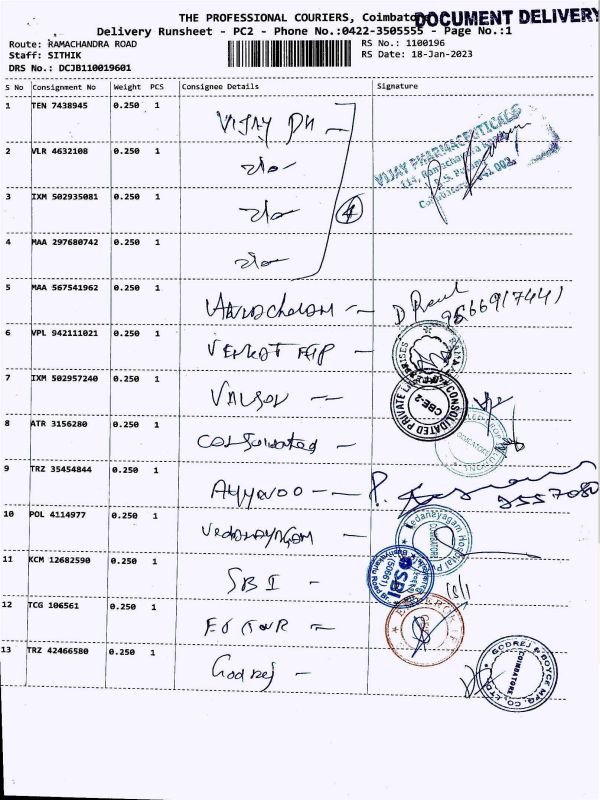 THE PROFESSIONAL COURIERS, Coimbato
DOCUMENT DELIVERY
Delivery Runsheet - PC2 - Phone No.:0422-3505555 - Page No.:1
Route: RAMACHANDRA ROAD
RS No.: 1100196
Staff: SITHIK
RS Date: 18-Jan-2023
DRS No.: DCJB110019601
S No Consignment No Weight PCS Consignee Details Signature
1 TEN 7438945 0.250 1 VIJAY PH
VIJAY PHARMACEUTICALS
114, Ramachandra
2 VLR 4632108 0.250 1
3 IXM 502935081 0.250 1
4
4 MAA 297680742 0.250 1
5 MAA 567541962 0.250 1
6 VPL 942111021 0.250 1
7 IXM 502957240 0.250 1
CONSOLIDATED PRIVATE
CBE-2
8 ATR 3156280 0.250 1 Consolidated
COIMBATORE
9 TRZ 35454844 0.250 1 Ayyavoo
10 POL 4114977 0.250 1 Vedanayagam
Vedanayagam Hospital
COIMBATORE
11 KCM 12682590 0.250 1 SBI
SBI
12 TCG 106561 0.250 1
13 TRZ 42466580 0.250 1 Godrej
GODREJ & BOYCE MFG. CO. LTD.
COIMBATORE